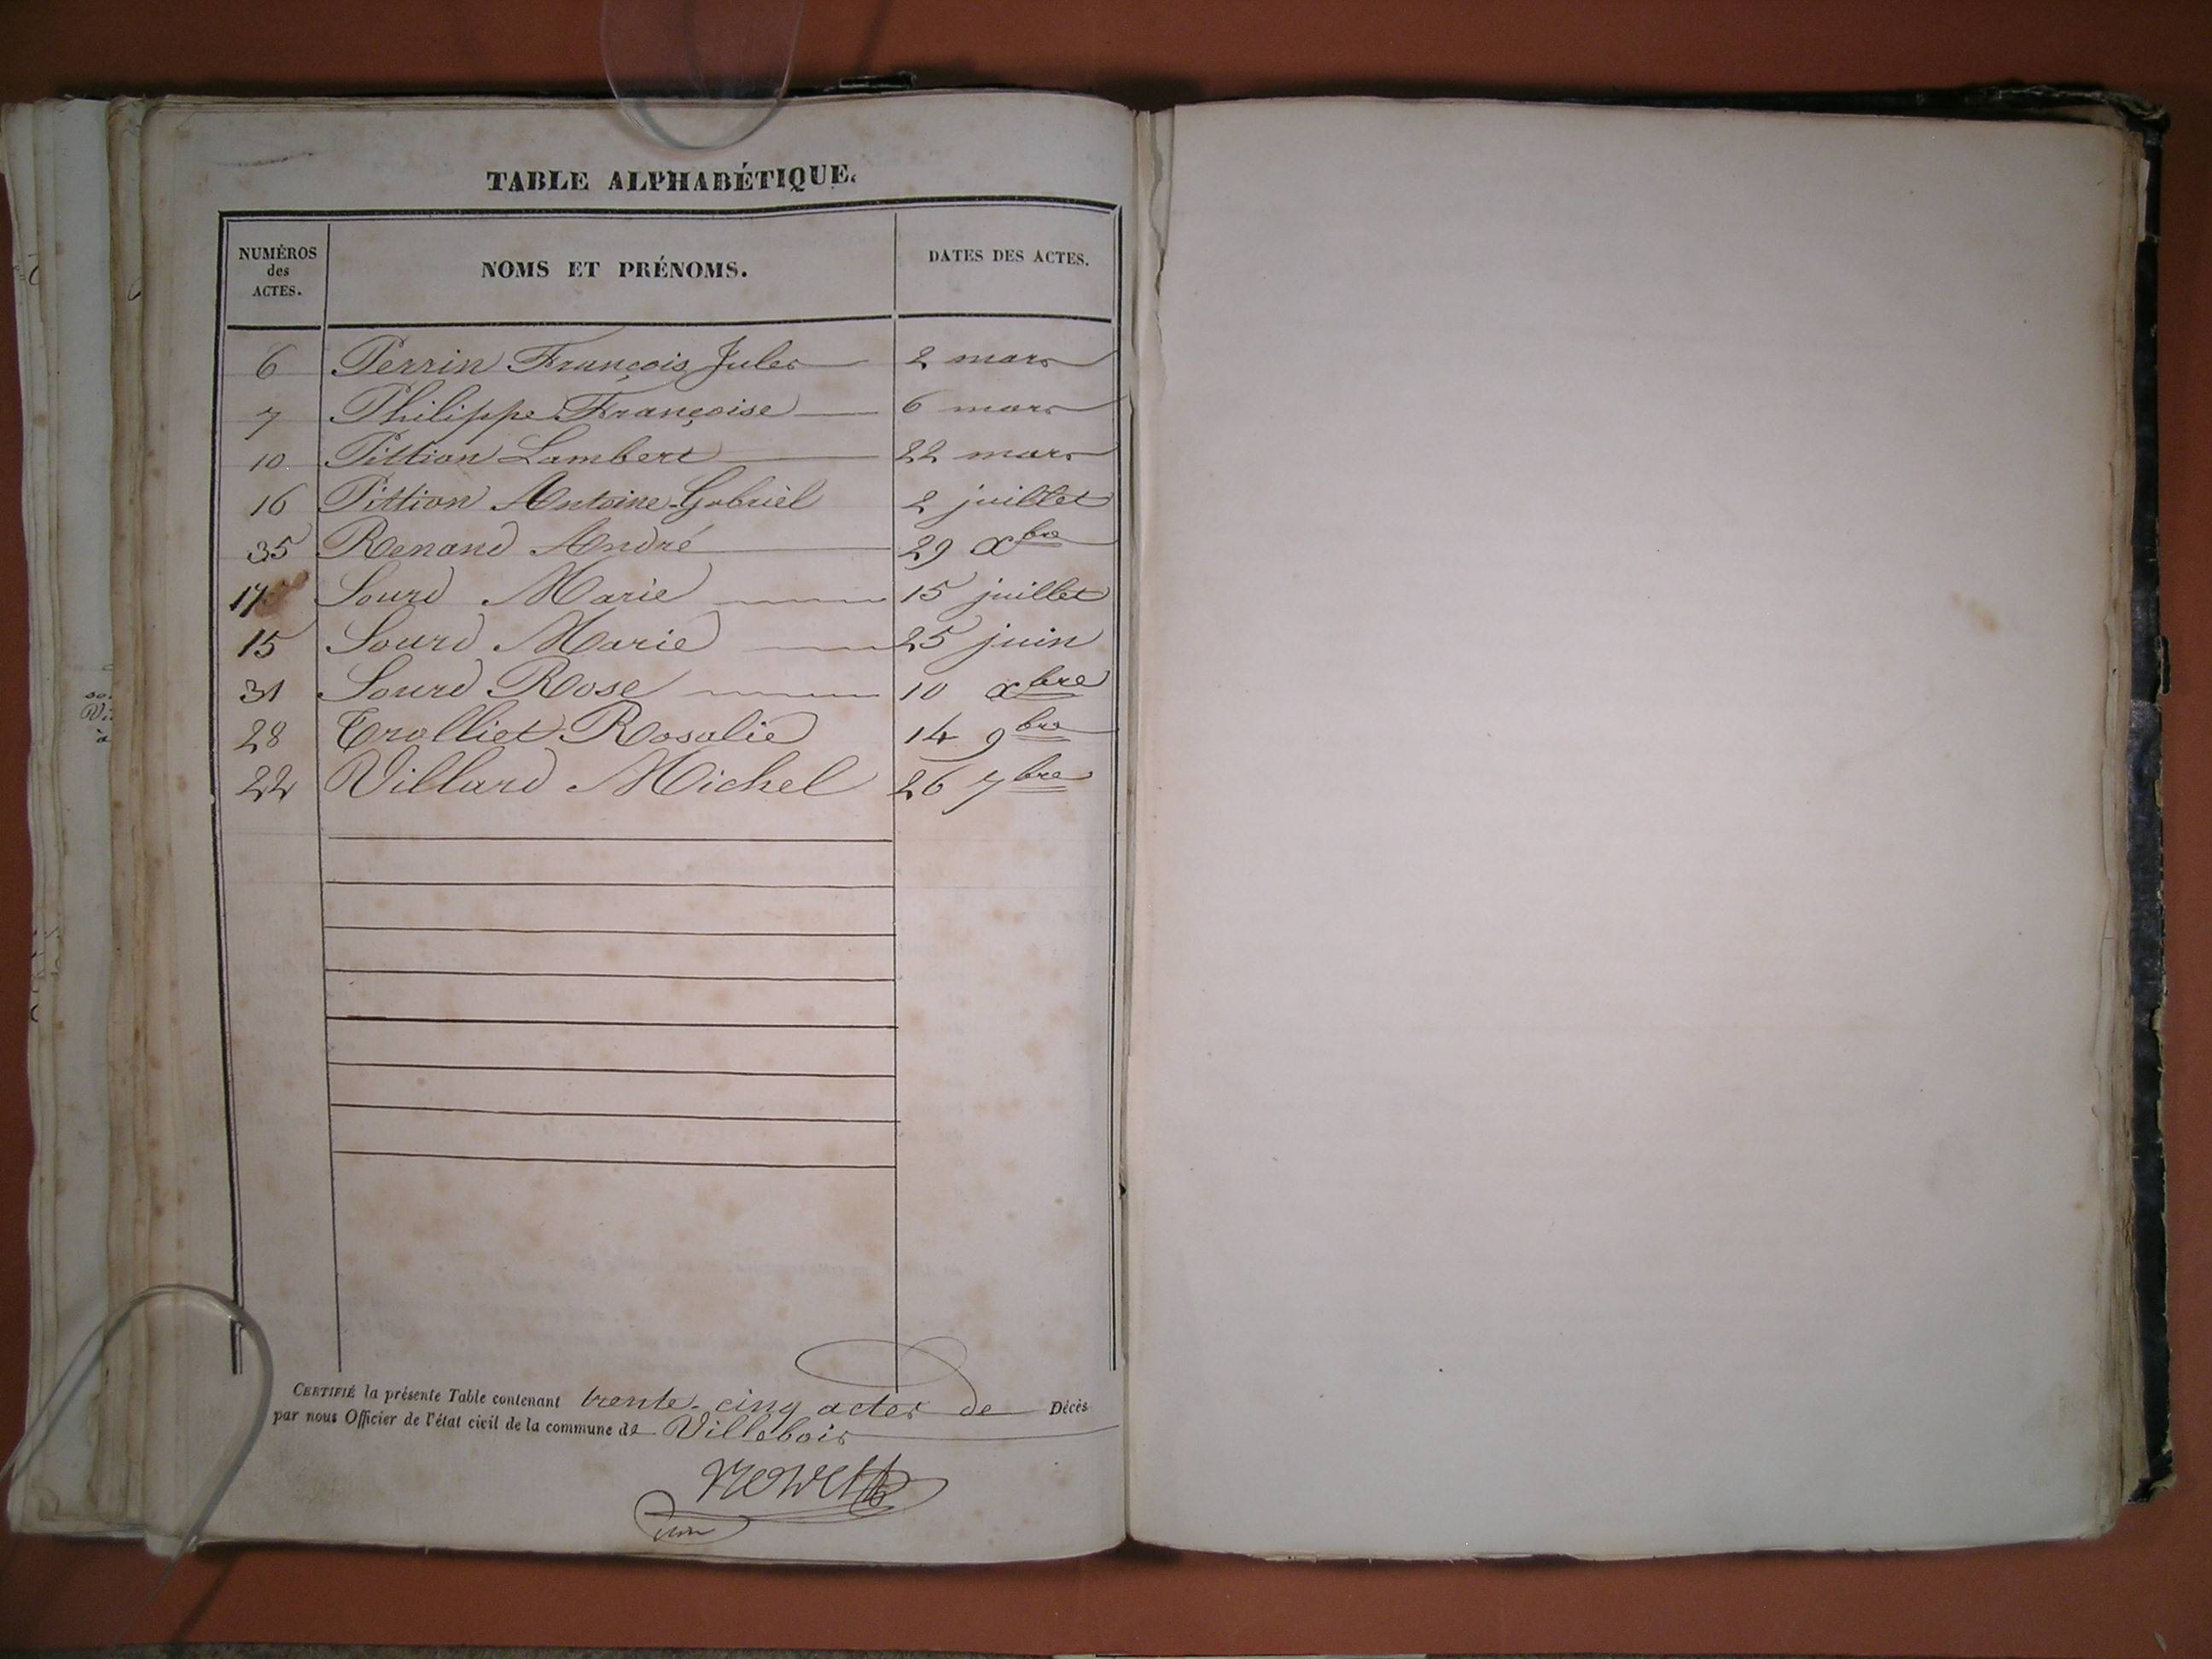 TABLE ALPHABÉTIQUE.
NUMÉROS des ACTES. NOMS ET PRÉNOMS. DATES DES ACTES.
6 Perrin François Jules 2 mars
7 Philippe Françoise 6 mars
10 Pittion Lambert 22 mars
16 Pittion Antoine-Gabriel 2 juillet
35 Renand André 29 Xbre
17 Sourd Marie 15 juillet
15 Sourd Marie 25 juin
31 Sourd Rose 10 Xbre
28 Trolliet Rosalie 14 9bre
22 Villard Michel 26 7bre
CERTIFIÉ la présente Table contenant trente-cinq actes de Décès
par nous Officier de l'état civil de la commune de Villebois